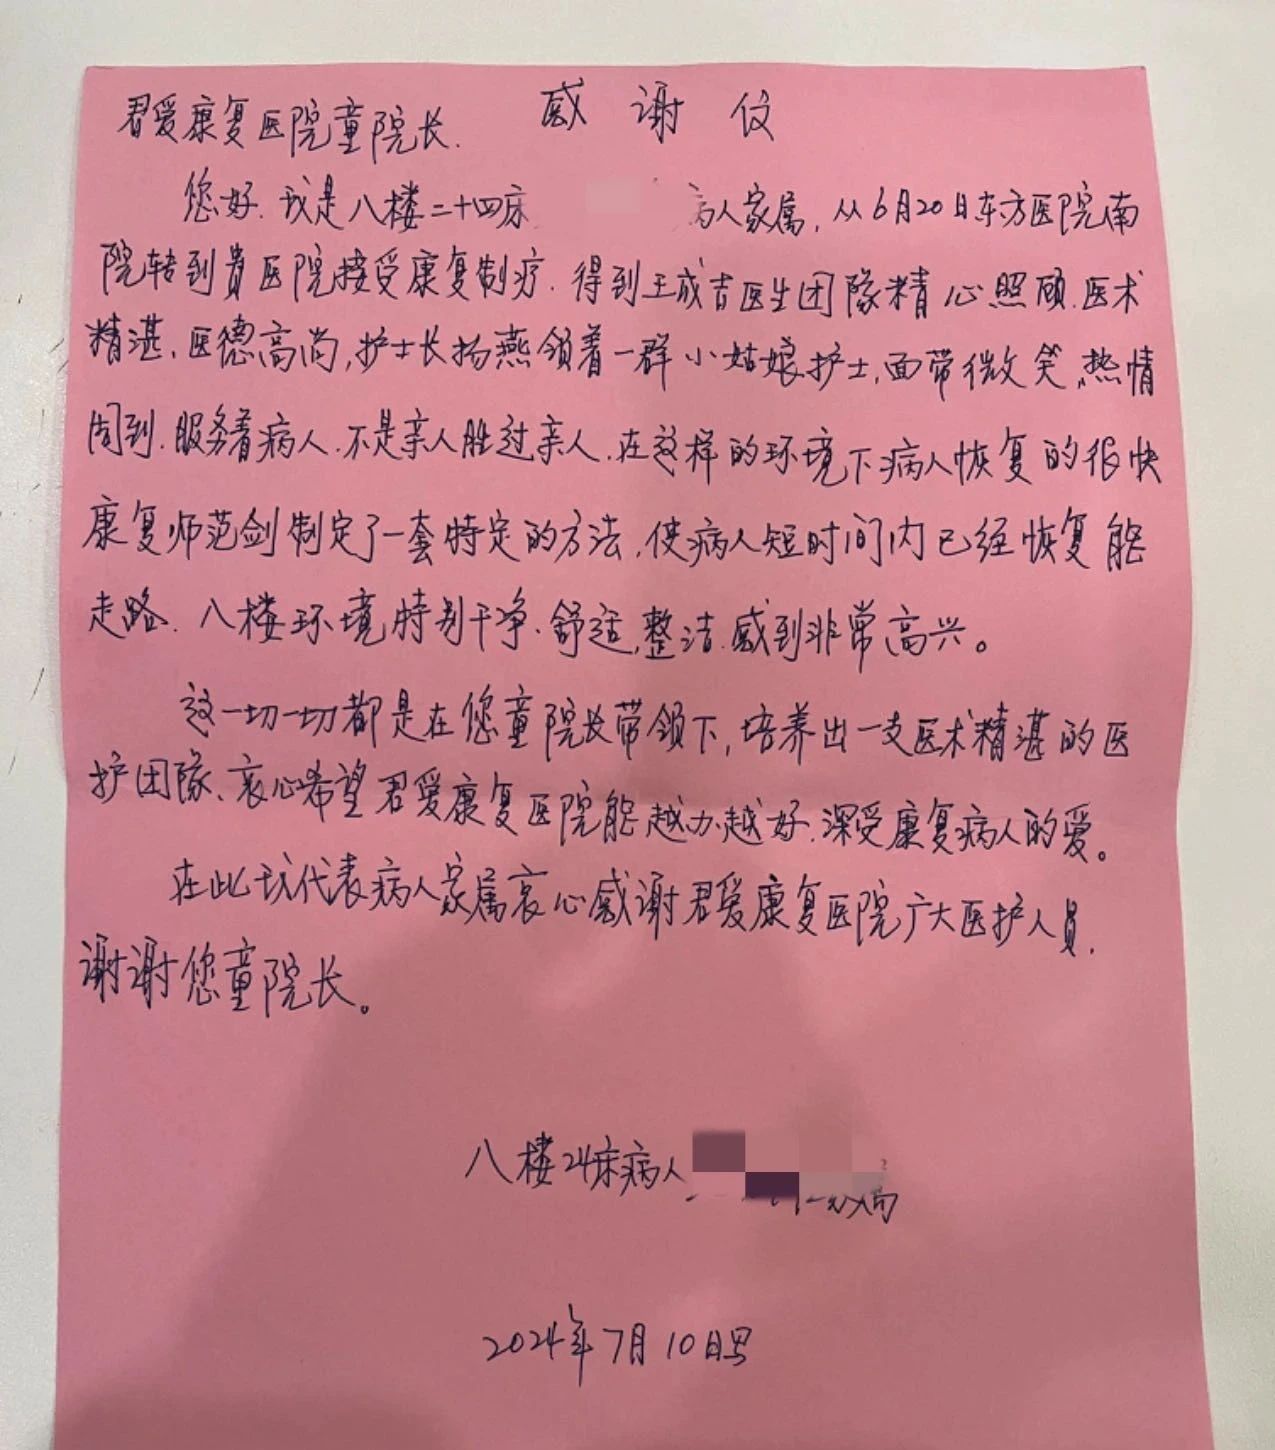 感谢信
君爱康复医院童院长.
您好.我是八楼二十四床 病人家属,从6月20日东方医院南
院转到贵医院接受康复制疗.得到王成吉医生团隊精心照顾.医术
精湛.医德高尚,护士长扬燕领着一群小姑娘护士,面带微笑.热情
周到.服务着病人.不是亲人胜过亲人.在这样的环境下病人恢复的很快
康复师范剑制定了一套特定的方法,使病人短时间内已经恢复能
走路.八楼环境特别干净.舒适,整洁.感到非常高兴。
这一切一切都是在您童院长带领下,培养出一支医术精湛的医
护团隊、衷心希望君爱康复医院能越办越好.深受康复病人的爱。
在此我代表病人家属衷心感谢君爱康复医院广大医护人员.
谢谢您童院长。
八楼24床病人 家属
2024年7月10日写